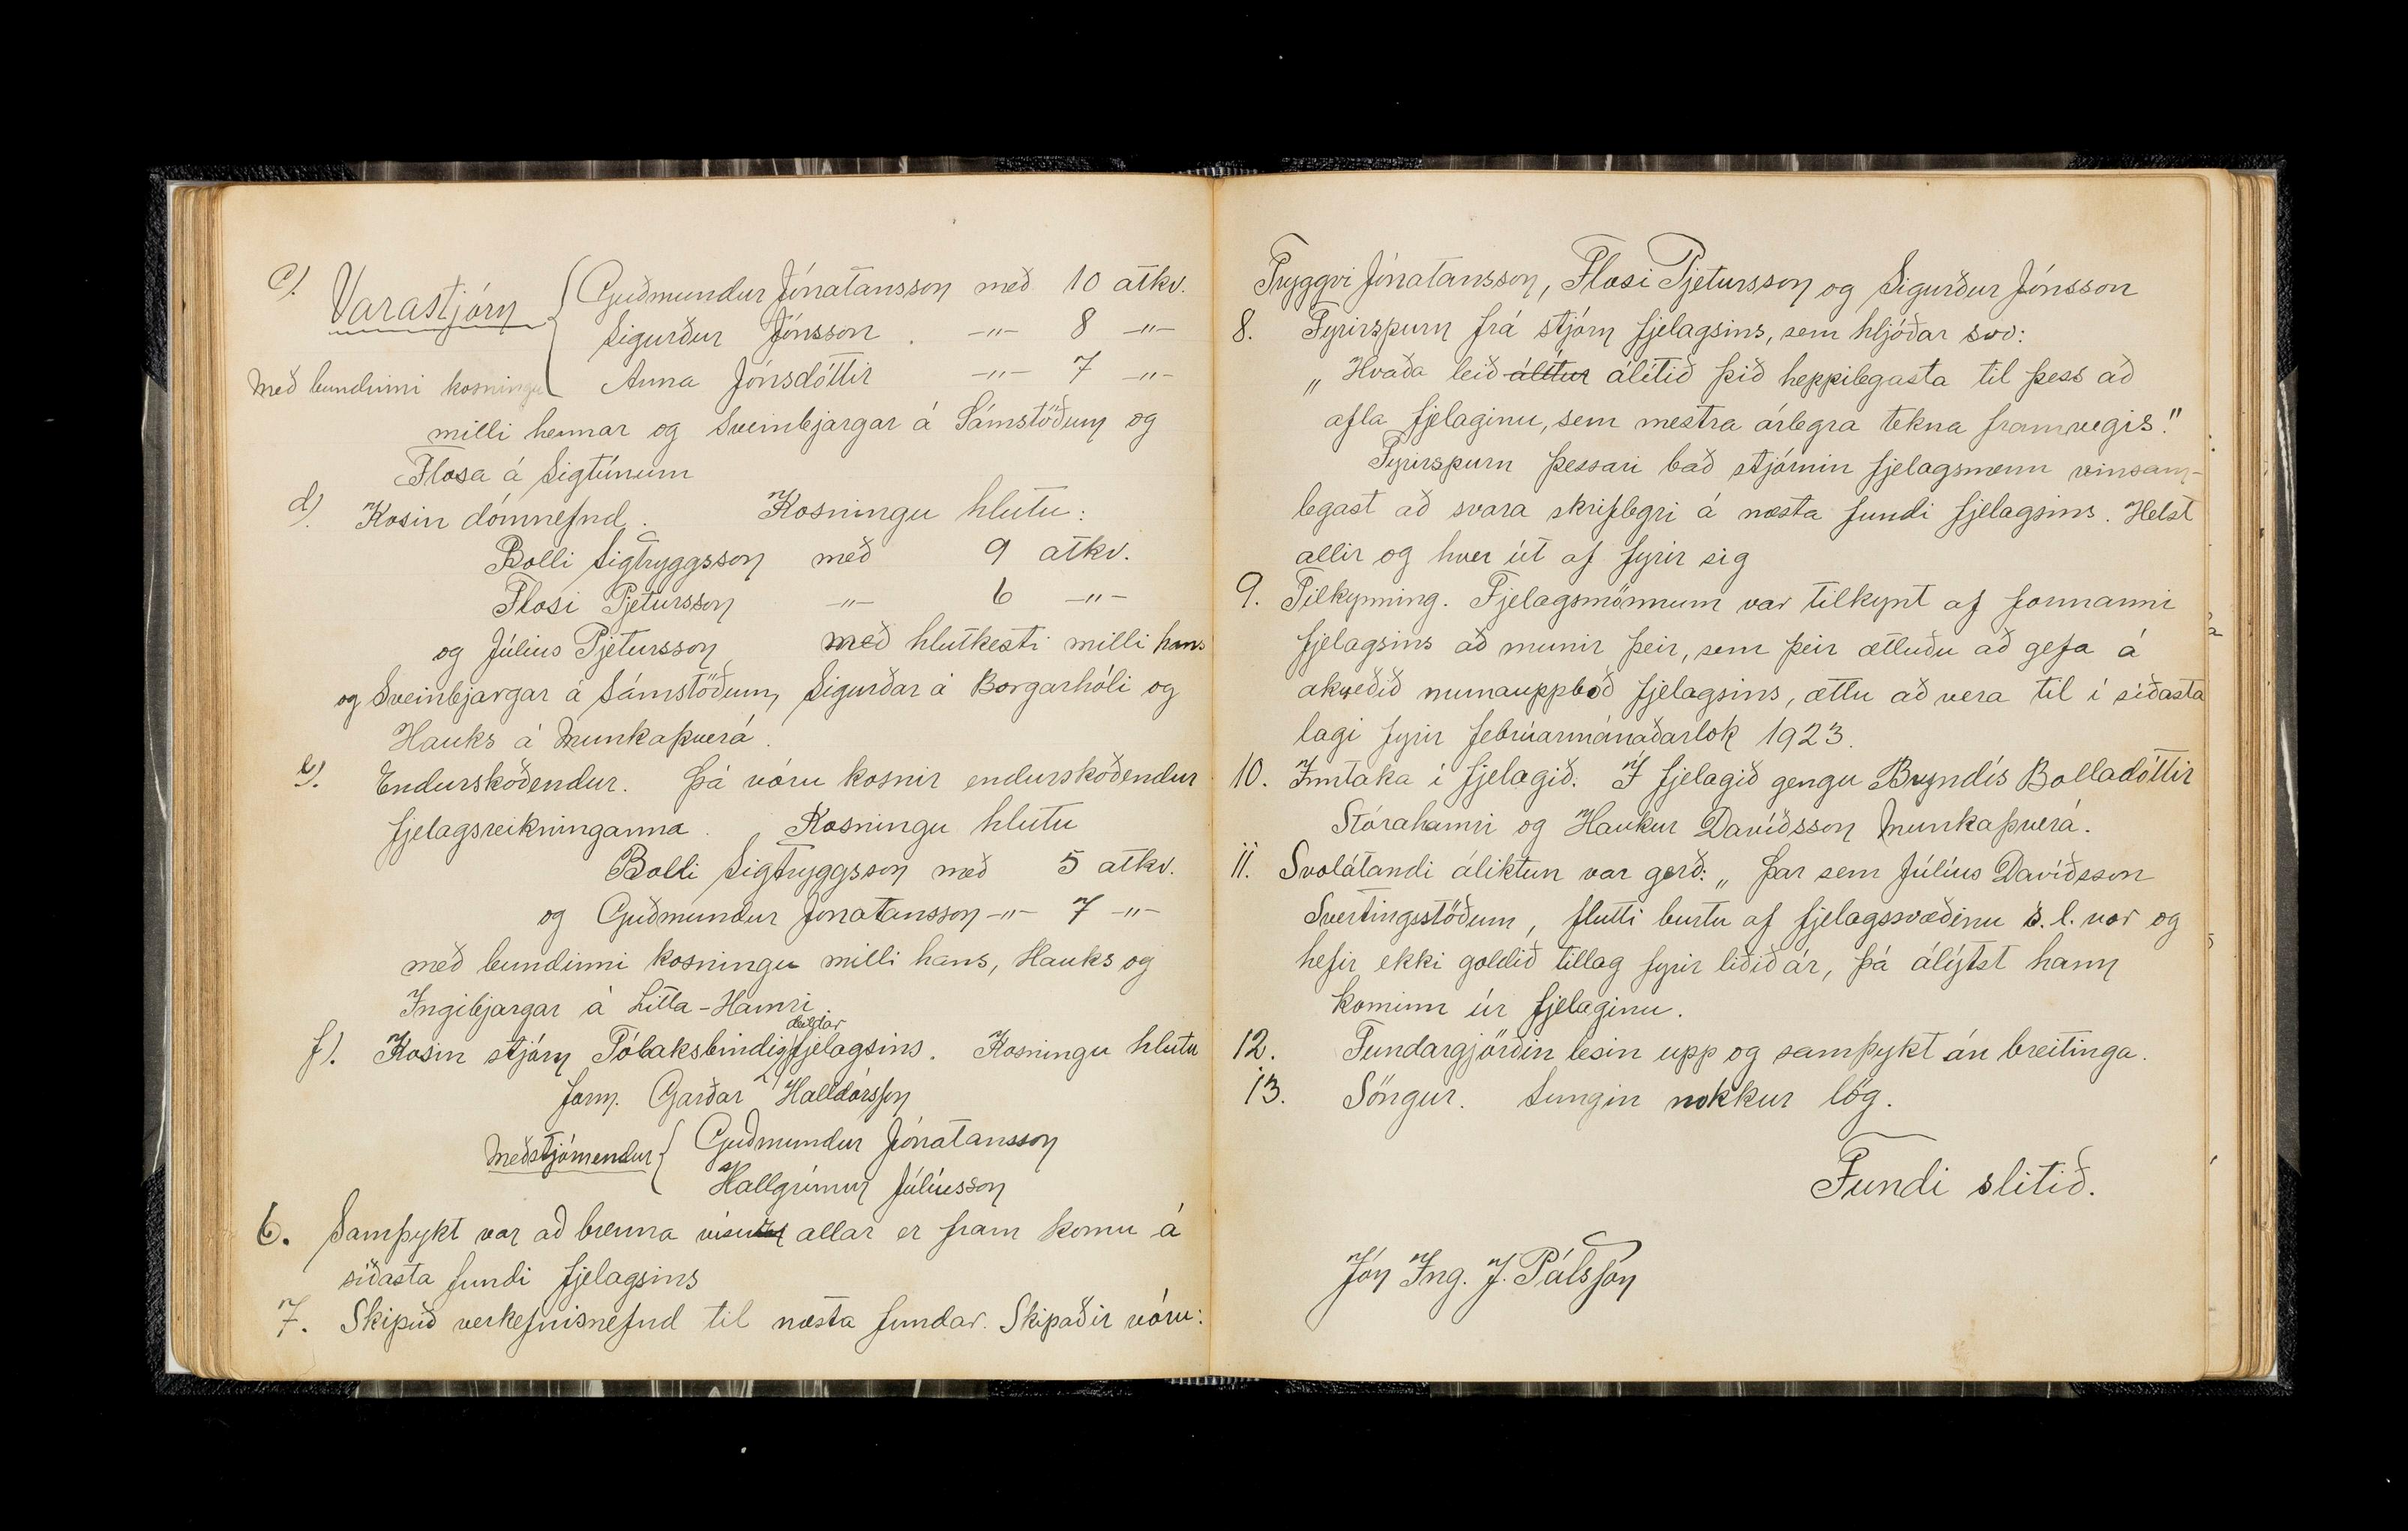 c). Varastjórn { Guðmundur Jónatansson með 10 atkv.
Sigurður Jónsson. -"- 8 -"-
Með bundinni kosningu Anna Jónsdóttir -"- 7 -"-
milli hennar og Sveinbjargar á Sámstöðum og
Flosa á Sigtúnum
d). Kosin dómnefnd. Kosningu hlutu:
Bolli Sigtryggsson með 9 atkv.
Flosi Pjetursson -"- 6 -"-
og Júlíus Pjetursson með hlutkesti milli hans
og Sveinbjargar á Sámstöðum, Sigurðar á Borgarhóli og
Hauks á Munkaþverá.
e). Endurskoðendur. Þá vóru kosnir endurskoðendur
fjelagsreikninganna. Kosningu hlutu
Bolli Sigtryggsson með 5 atkv.
og Guðmundur Jónatansson -"- 7 -"-
með bundinni kosningu milli hans, Hauks og
Ingibjargar á Litla-Hamri
deildar
f). Kosin stjórn Tóbaksbindis fjelagsins. Kosningu hlutu
form. Garðar Halldórsson
Meðstjórnendur { Guðmundur Jónatansson
Hallgrímur Júlíusson
6. Samþykt var að brenna vísur allar er fram komu á
síðasta fundi fjelagsins
7. Skipuð verkefnisnefnd til næsta fundar. Skipaðir vóru:
Tryggvi Jónatansson, Flosi Pjetursson og Sigurður Jónsson
8. Fyrirspurn frá stjórn fjelagsins, sem hljóðar svo:
„Hvaða leið álítur álítið þið heppilegasta til þess að
afla fjelaginu, sem mestra árlegra tekna framvegis."
Fyrirspurn þessari bað stjórnin fjelagsmenn vinsam-
legast að svara skriflegri á næsta fundi fjelagsins. Helst
allir og hver út af fyrir sig
9. Tilkynning. Fjelagsmönnum var tilkynt af formanni
fjelagsins að munir þeir, sem þeir ætluðu að gefa á
akveðið munauppboð fjelagsins, ættu að vera til í síðasta
lagi fyrir febrúarmánaðarlok 1923.
10. Inntaka í fjelagið. Í fjelagið gengu Bryndís Bolladóttir
Stórahamri og Haukur Davíðsson Munkaþverá.
11. Svolátandi áliktun var gerð: „Þar sem Júlíus Davíðsson
Svertingsstöðum, flutti burtu af fjelagssvæðinu s.l. vor og
hefir ekki goldið tillag fyrir liðið ár, þá álýtst hann
kominn úr fjelaginu.
12. Fundargjörðin lesin upp og samþykt án breitinga.
13. Söngur. Sungin nokkur lög.
Fundi slitið.
Jón Ing. J. Pálsson